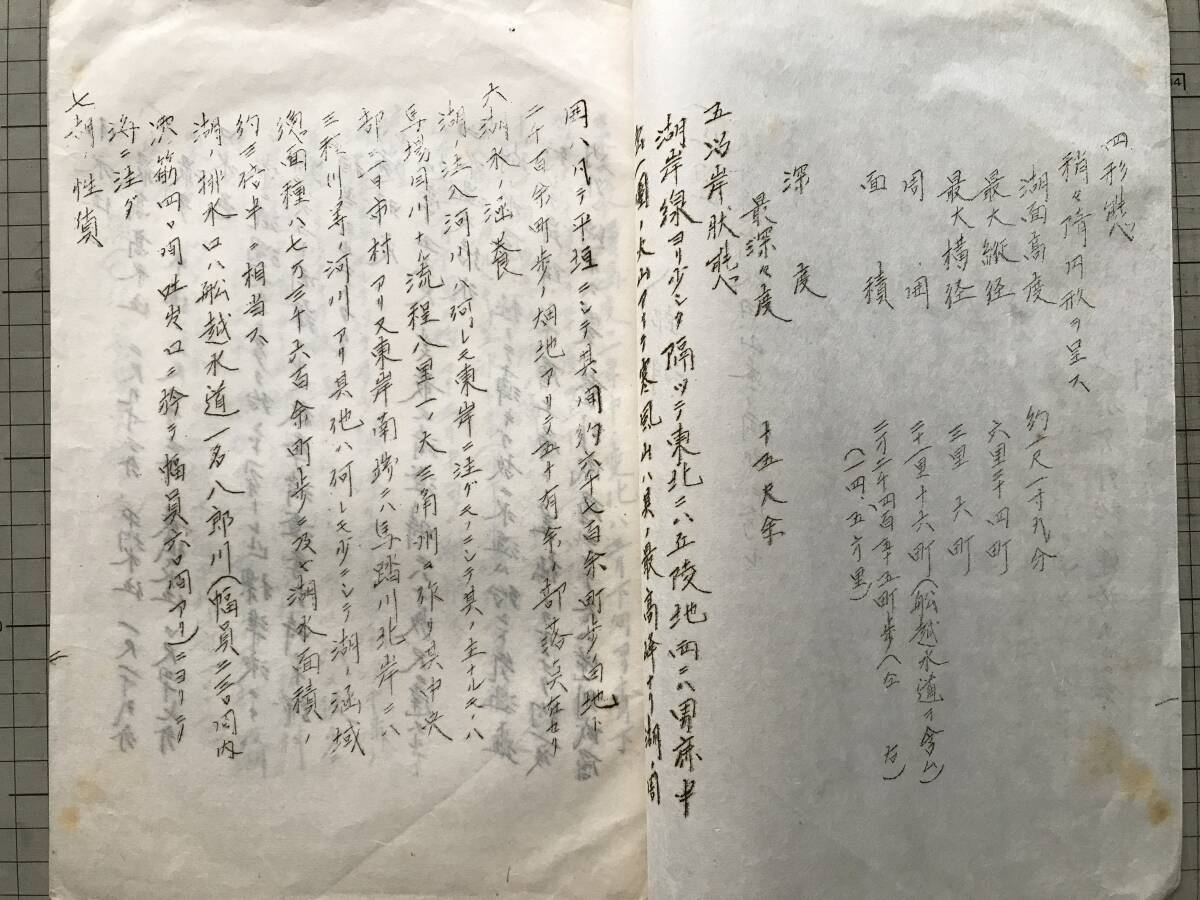 四形態
稍々隋円形ヲ呈ス
湖面高度 約一尺一寸九分
最大縦径 六里三十四町
最大横径 三里六町
周囲 二十一里十六町(舩越水道ヲ含ム)
面積 二万二千四百五町歩(仝右)
(一四、五方里)
深度
最深々度 十五尺余
五沿岸状態
湖岸線ヨリ少シク隔ツテ東北ニハ丘陵地西ニハ男鹿半
島一圓ノ大山アリテ寒風山ハ其ノ最高峰ナリ湖ノ周
囲ハ凡テ平垣ニシテ其ノ間約六千七百余町歩ノ
二千百余町歩ノ畑地アリテ五十有余ノ部落点在セリ
六湖水ノ涵養
湖ノ注入河川ハ何レモ東岸ニ注グモノニシテ其ノ主ナルモノハ
馬場目川ナル流程八里一ノ大三角州ヲ作リ其中央
部ニ一日市村アリ又東岸南端ニハ馬踏川北岸ニハ
三種川等ノ河川アリ其他ハ何レモ少ニシテ湖ノ涵域
総面種ハ七万三千六百余町歩ニ及ヒ湖水面積ノ
約三倍半ニ相当ス
湖ノ排水口ハ舩越水道一名八郎川(幅員二三〇間内
澪筋四〇間 口ニ於テ幅員六〇間アリ)ニヨリテ
海ニ注グ
七湖ノ性質